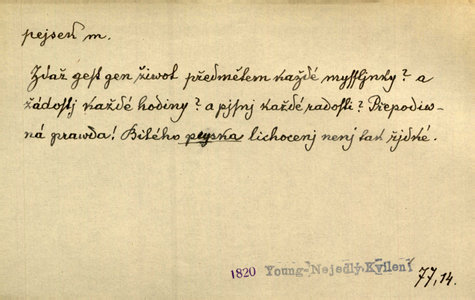 pejsek m.
Zdaž gest gen žiwot předmětem každé mysssljnky? a
žádostj každé hodiny? a pjsnj každé radosti? Přepodiw-
ná prawda! Bitého peyska lichocenj nenj tak řjdké.
1820 Young-Nejedlý, Kvílení 77,14.